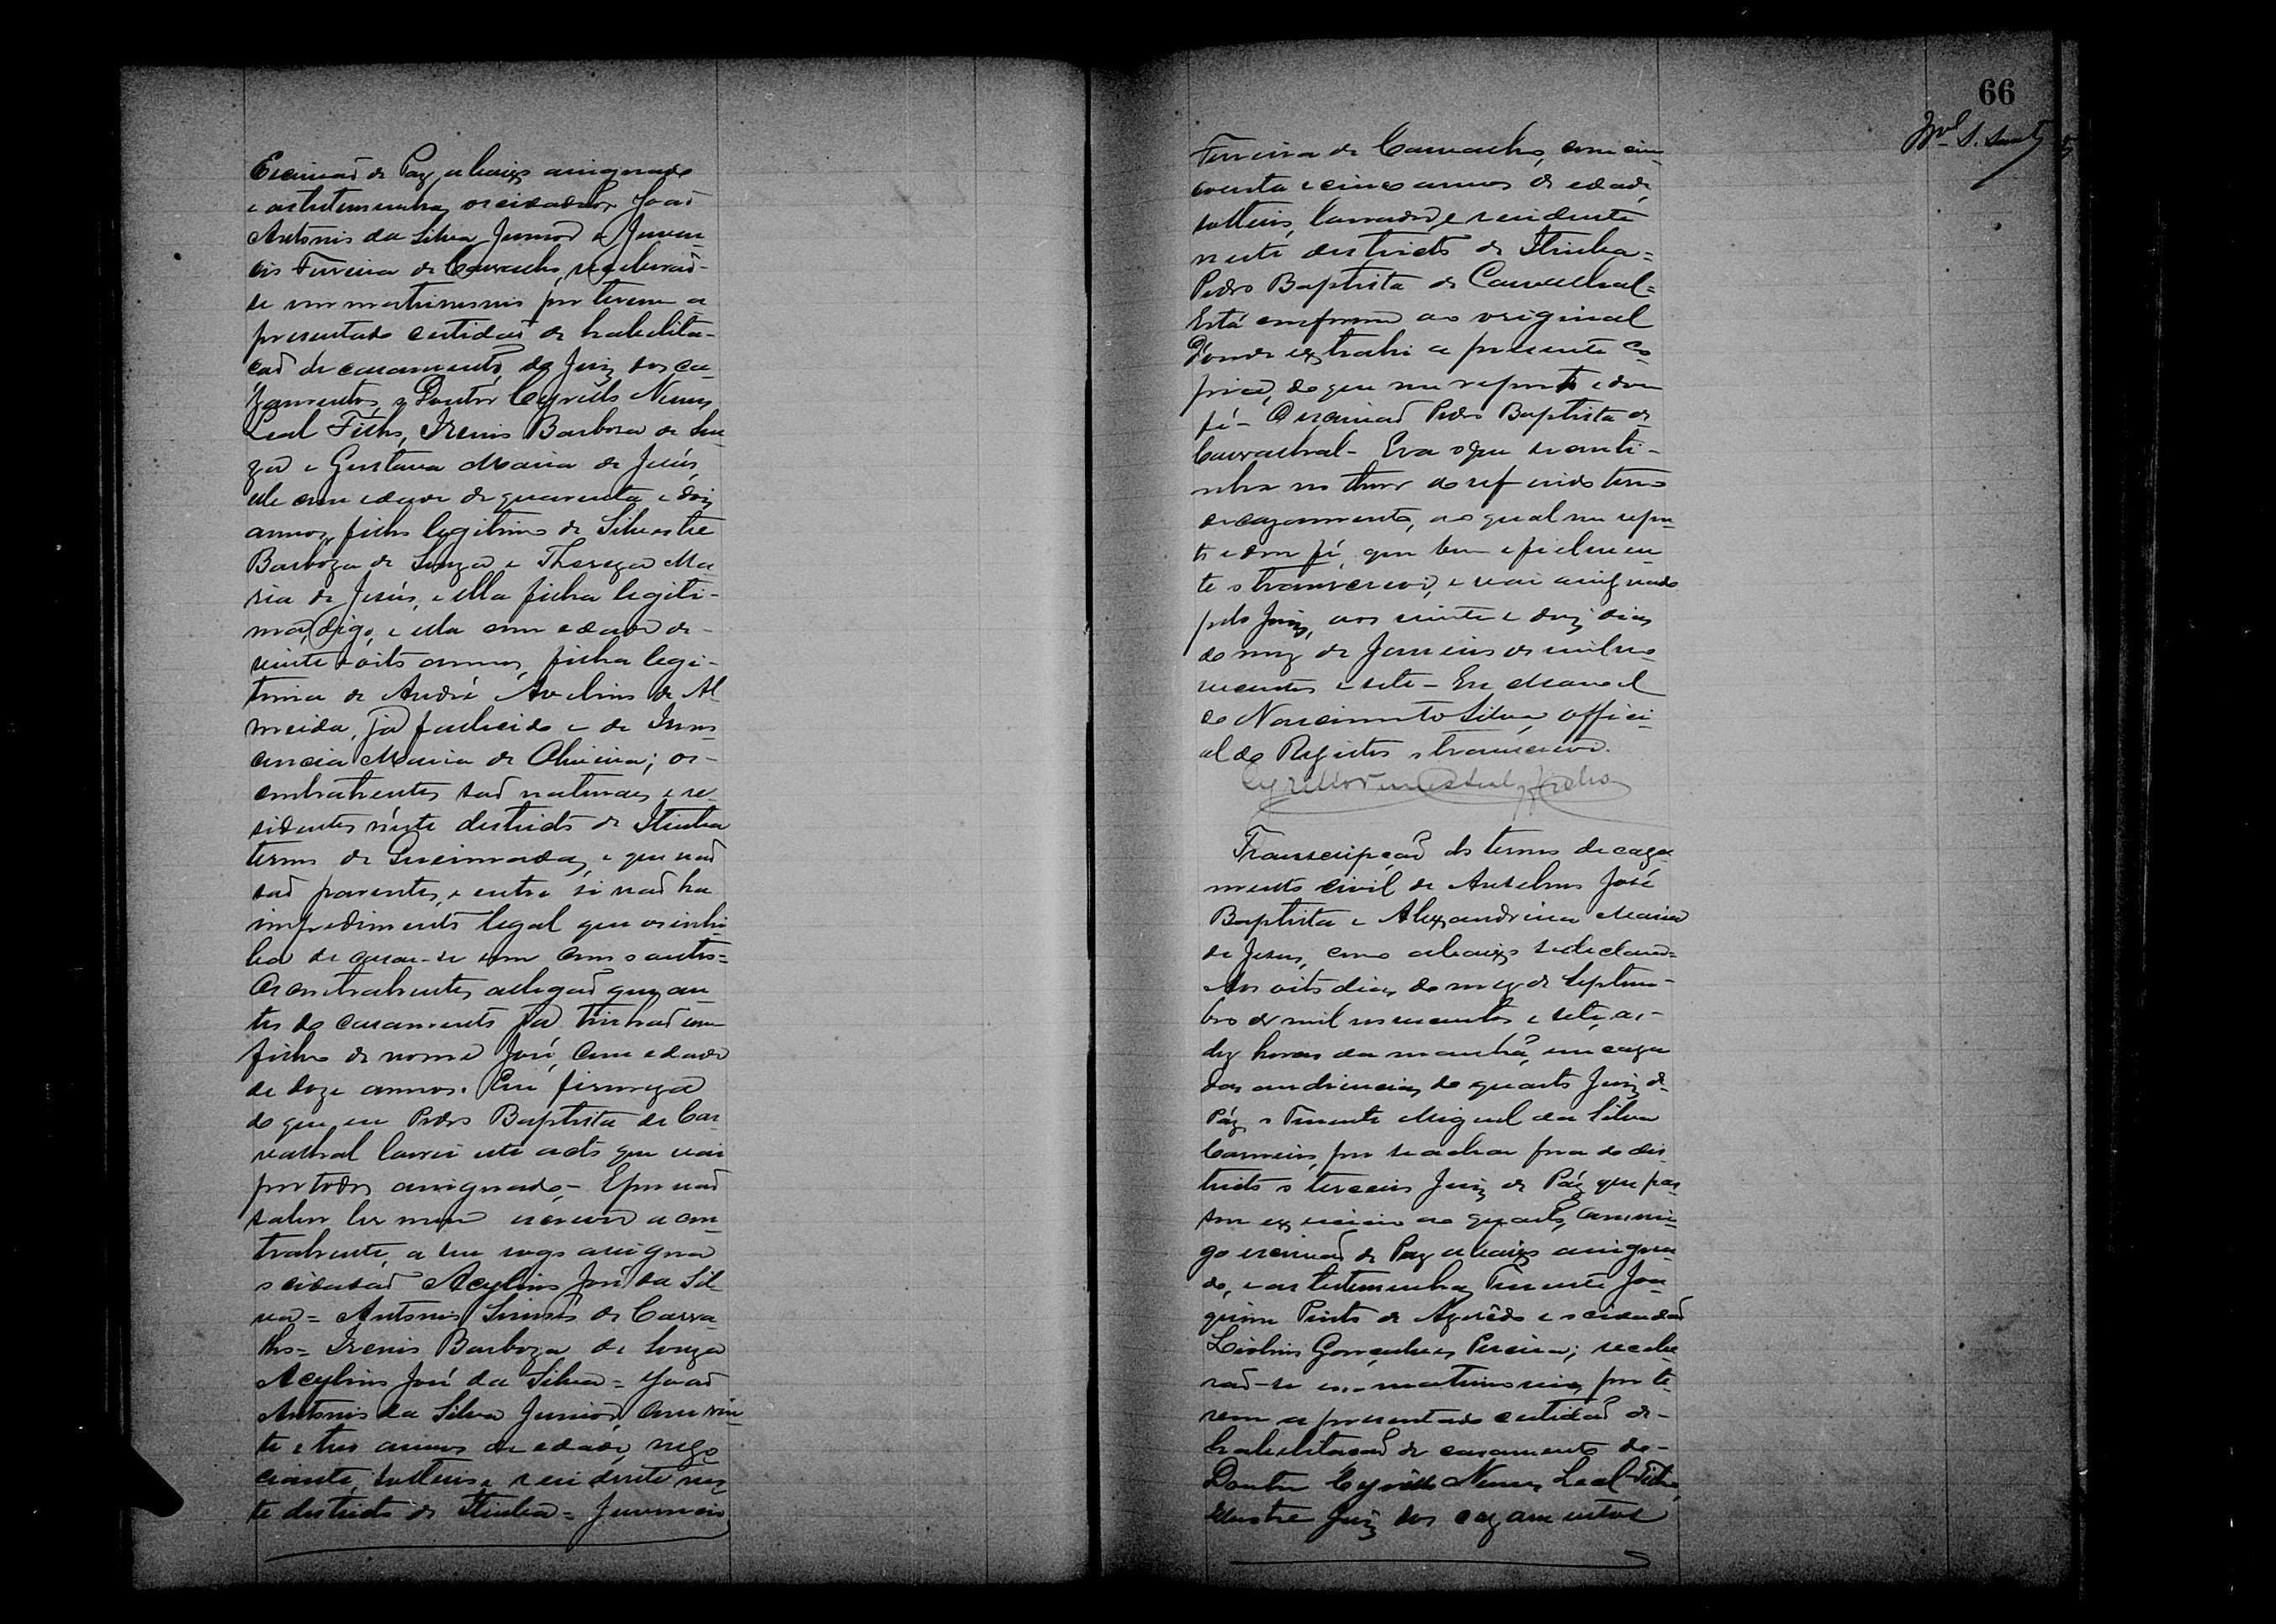 Escrivaõ de Paz, abaixo assignado
e as testemunhas os cidadãos João
Antonio da Silva Junior e Juven-
cio Ferreira de Carvalho, receberaõ-
se em matrimonio por terem a
presentado certidaõ de habilita-
çaõ de casamento do Juiz dos ca-
zamentos, o Doutor Cyrillo Nunes
Leal Filho, Irenio Barbosa de Sou-
za e Gustava Maria de Jesús,
elle com edade de quarenta e dois
annos, filho legitimo de Silvestre
Barboza de Souza e Thereza Ma-
ria de Jesús, e ella filha legiti-
ma, digo, e ella com edade de
vinte e oito annos, filha legi-
tima de André Avelino de Al-
meida, já fallecido e de Inno-
cencia Maria de Oliveira; os
contrahentes saõ naturaes e re-
sidentes n'este districto de Itiuba
termo de Queimadas, e que naõ
saõ parentes, e entre si naõ ha
impedimento legal que os inhi-
ba de casar-se um com o outro=
Os contrahentes allegaõ que an-
tes do casamento já tinhaõ um
filho de nome José, com edade
de doze annos. Em firmeza
do que eu Pedro Baptista de Car-
valhal lavrei este acto que vai
por todos assignado- E por naõ
saber ler nem escrever a con-
trahente, a seu rogo assigna
o cidadaõ Acylino José da Sil-
va= Antonio Simões de Carva-
lho= Irenio Barboza de Souza
Acylino José da Silva= João
Antonio da Silva Junior, com vin-
te e tres annos de edade, nego
ciante, solteiro e residente nes-
te districto de Itiuba= Juvencio
66
Ferreira de Carvalho, com cin-
coenta e cinco annos de edade,
solteiro, lavrador, e residente
neste districto de Itiuba=
Pedro Baptista de Carvalhal=
Está conforme ao original
d'onde extrahi a presente co
pia, do que me reporto e dou
fé- O escrivaõ Pedro Baptista de
Carvalhal- Era o que se conti-
nha no theor do referido termo
de cazamento, ao qual me repor
to e dou fé, que bem e fielmen
te o transcrevi, e vai assignado
pelo Juiz, aos vinte e dois dias
do mez de Janeiro de mil no
vecentos e sete- Eu Manoel
do Nascimento Silva, offici-
al do Registro o transcrevi.
Cyrillo Nunes Leal Filho
Transcripçaõ do termo de caza-
mento civil de Anselmo José
Baptista e Alexandrina Maria
de Jesus, como abaixo se declara=
Aos oito dias do mez de Septem-
bro de mil novecentos e sete, as-
dez horas da manhã, em caza
das audiencias do quarto Juiz de
Páz o Tenente Miguel da Silva
Carneiro, por se achar fora do dis-
tricto o terceiro Juiz de Páz que pas-
sou exercicio ao quarto, commi-
go escrivaõ de Paz abaixo assigna-
do, e as testemunhas Tenente Joa-
quim Pinto de Azevêdo e o cidadaõ
Liolino Gonçalves Pereira; recebe
raõ-se em matrimonio, por te-
rem apresentado certidaõ de-
habilitaçaõ de casamento do-
Doutor Cyrillo Nunes Leal Filho,
illustre Juiz dos cazamentos